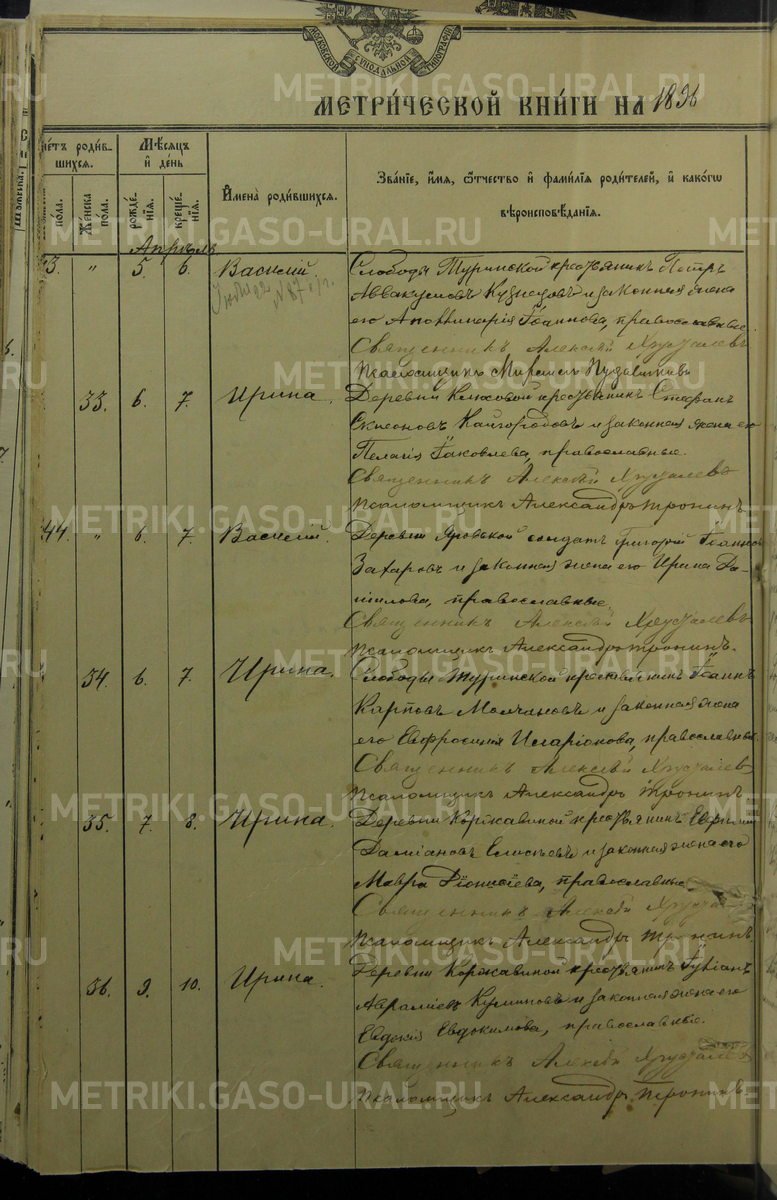 МОСКОВСКОЙ СѴНОДАЛЬНОЙ ТИПОГРАФІИ
МЕТРИ́ЧЕСКОЙ КНИ́ГИ НА 1896
METRIKI.GASO-URAL.RU
Счетъ роди́в-
шихся.
Мѣсяцъ
и҆ де́нь
И҆мена̀ роди́вшихся.
Зва́ніе, и҆́мя, ѻ҆́тчество и҆ фами́лїя роди́телей, и҆ како́гѡ
вѣроисповѣ́данїя.
по́ла.
Же́нска
по́ла.
рожде́-
нїя.
креще́-
нїя.
Апрѣль
43. " 5. 6. Василій. Слободы Туринской крестьянинъ Петръ
Аввакумовъ Кузнецовъ и законная жена
его Аполлинарія Іоаннова, православные.
Священникъ Алексѣй Хрусталевъ
Псаломщикъ
33. 6. 7. Ирина. Деревни крестьянинъ Стефанъ
Кайгородовъ и законная жена его
Пелагія Іаковлева, православные.
Священникъ Алексѣй Хрусталевъ
Псаломщикъ Александръ Тронинъ
44. " 6. 7. Василій. Деревни солдатъ Григорій Іоанновъ
Захаровъ и законная жена его Ирина Да-
нилова, православные.
Священникъ Алексѣй Хрусталевъ
Псаломщикъ Александръ Тронинъ.
34. 6. 7. Ирина. Слободы Туринской крестьянинъ Іоаннъ
Карповъ Молчановъ и законная жена
его Евфросинія Иларіонова, православные.
Священникъ Алексѣй Хрусталевъ
Псаломщикъ Александръ Тронинъ
35. 7. 8. Ирина. Деревни Коржавиной крестьянинъ
Даміановъ Елисѣевъ и законная жена его
Мавра Діонисіева, православные.
Священникъ Алексѣй Хрусталевъ
Псаломщикъ Александръ Тронинъ
36. 9. 10. Ирина. Деревни Коржавиной крестьянинъ
Авраміевъ и законная жена его
Евдокія Евдокимова, православные.
Священникъ Алексѣй Хрусталевъ
Псаломщикъ Александръ Тронинъ